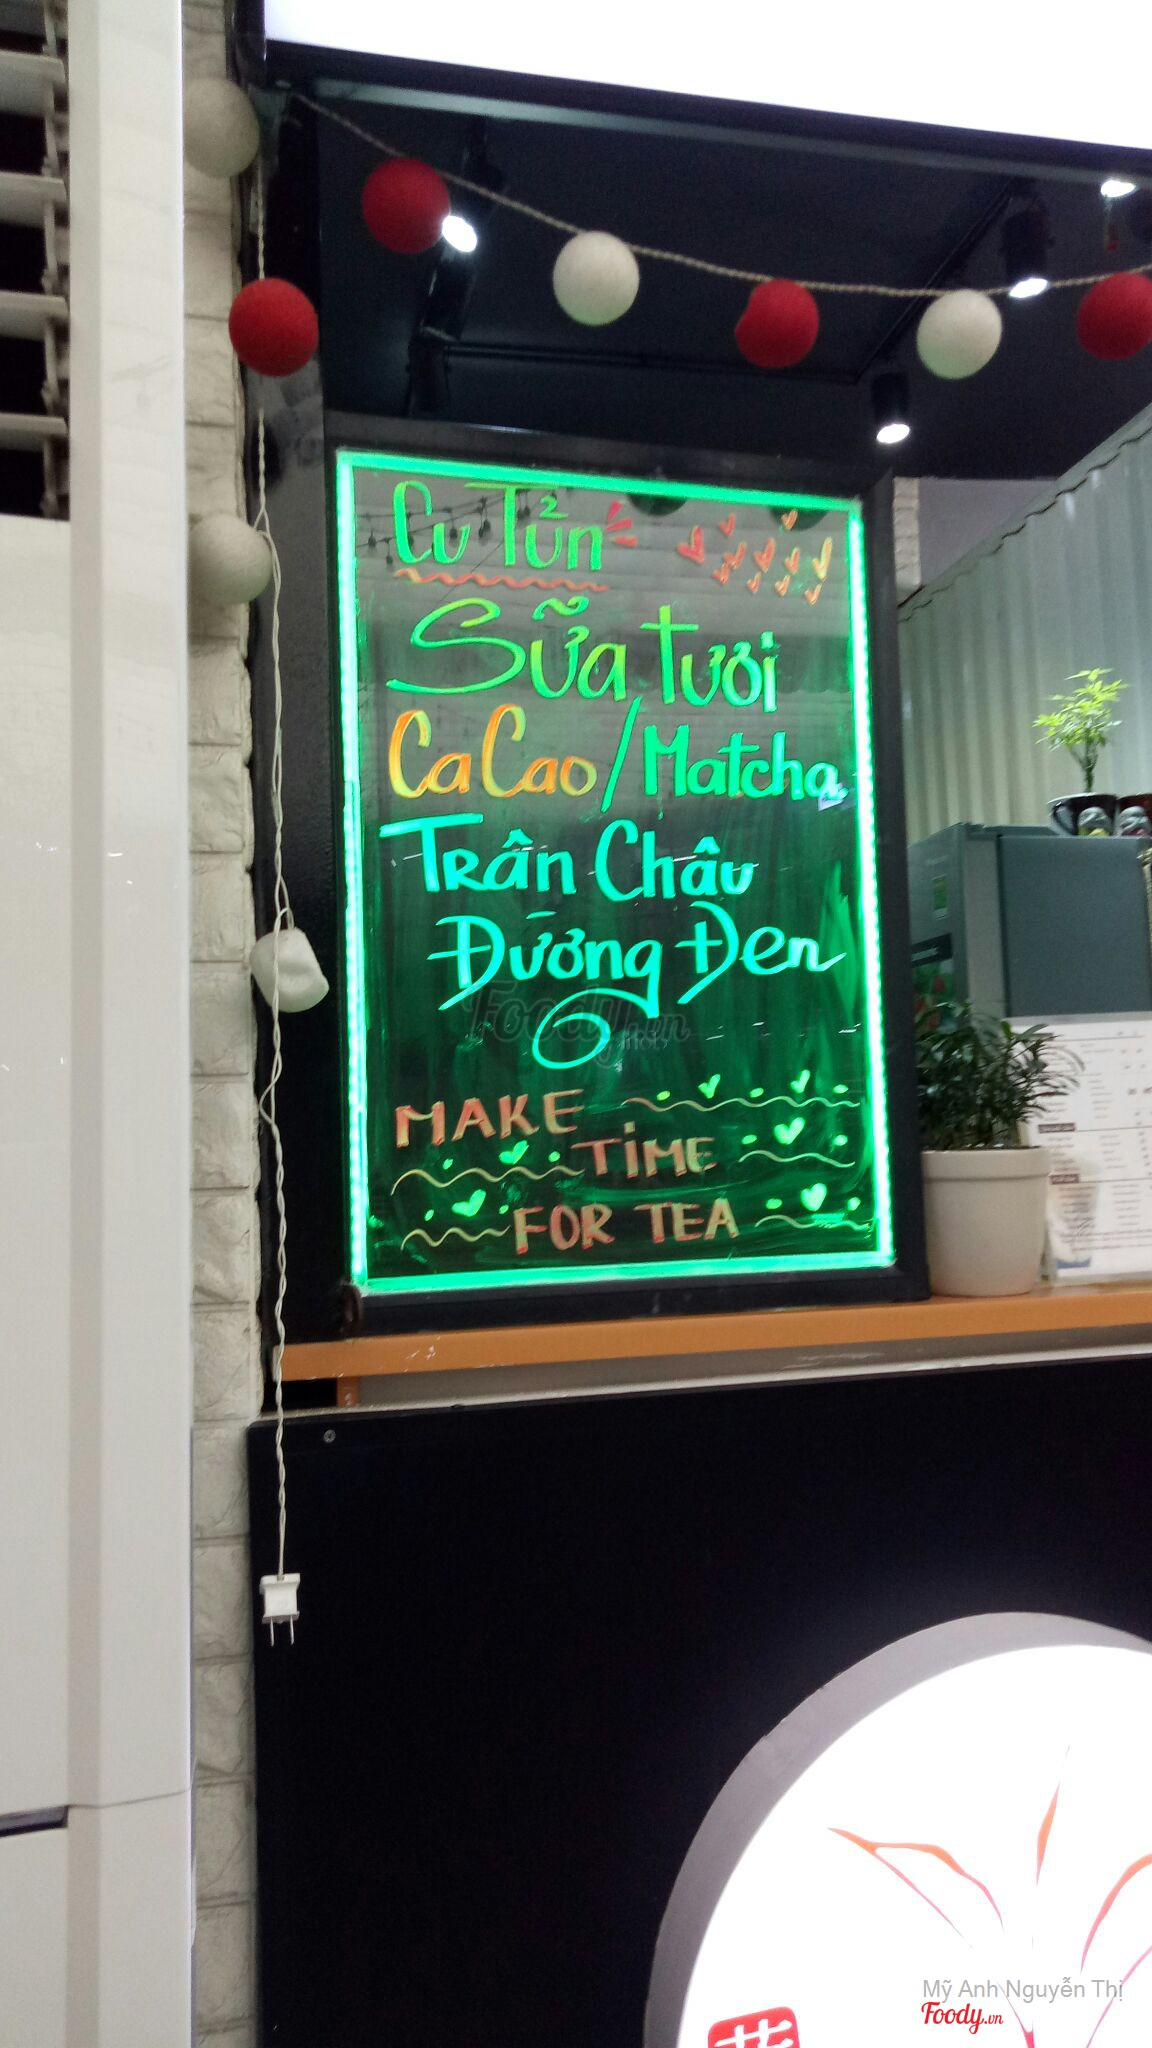 Cu Tủn
Sữa Tươi
CaCao/Matcha
Trân Châu
Đường Đen
Foody.vn
MAKE
TIME
FOR TEA
Mỹ Anh Nguyễn Thị
Foody.vn